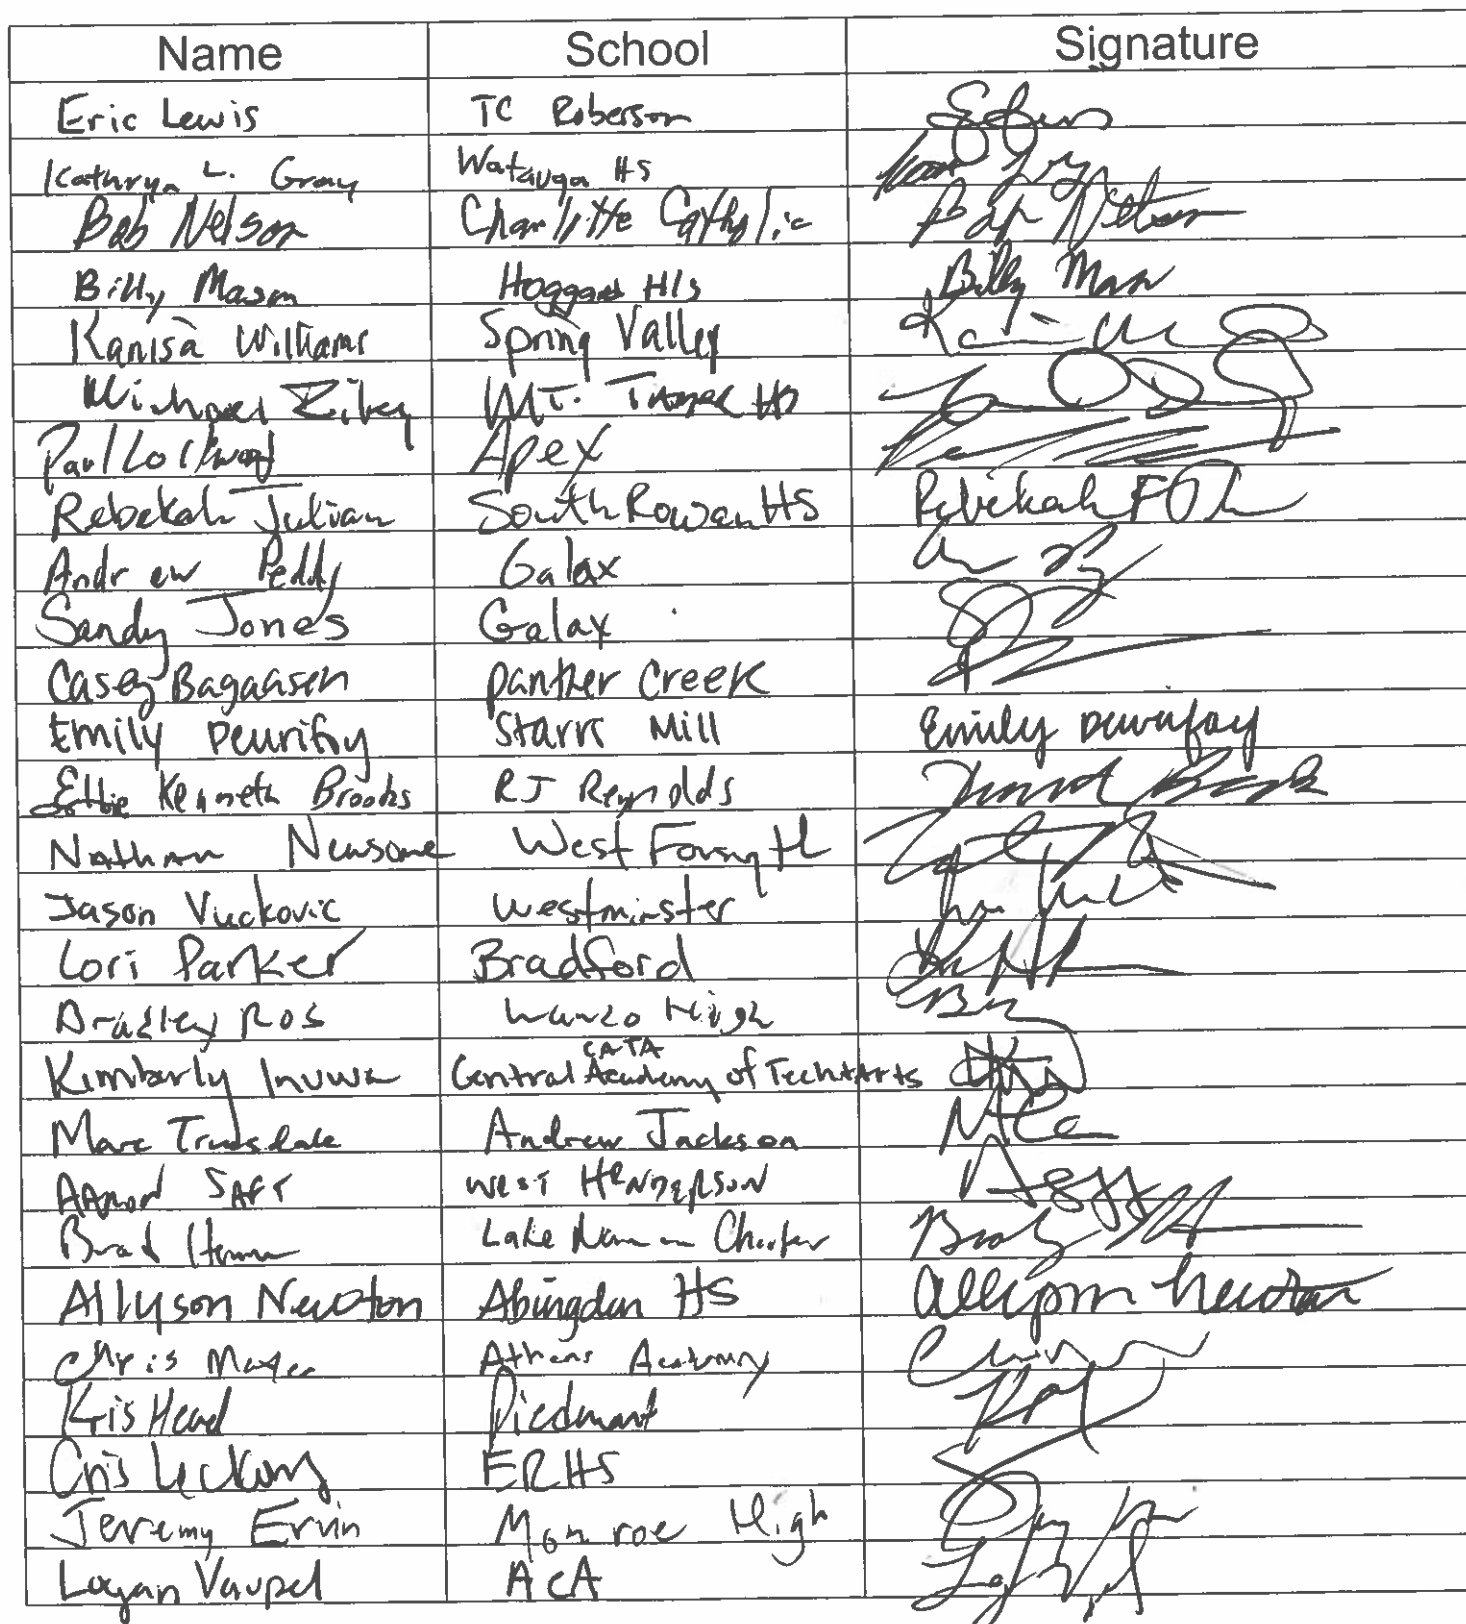 Name School Signature
Eric Lewis TC Roberson
Kathryn L. Gray Watauga HS
Bob Nelson Charlotte Catholic Bob Nelson
Billy Mason Hoggard H/S Billy Mason
Kanisa Williams Spring Valley
Michael Ziley MT. Tabor HS
Paul Lockwood Apex
Rebekah Julian South Rowan HS Rebekah
Andrew Peddy Galax
Sandy Jones Galax
Casey Bagaasen Panther Creek
Emily Peurifoy Starrs Mill Emily Peurifoy
Kenneth Brooks RJ Reynolds
Nathan Newsome West Forsyth
Jason Vuckovic Westminster
Lori Parker Bradford
Bradley High
CATA
Kimberly Inuwa Central Academy of Tech+Arts
Marc Truesdale Andrew Jackson
West Henderson
Brad Lake Norman Charter
Allyson Newton Abingdon HS Allyson Newton
Chris Athens Academy
Kris Head Piedmont
Cris ERHS
Jeremy Ervin Monroe High
Logan Vaupel ACA